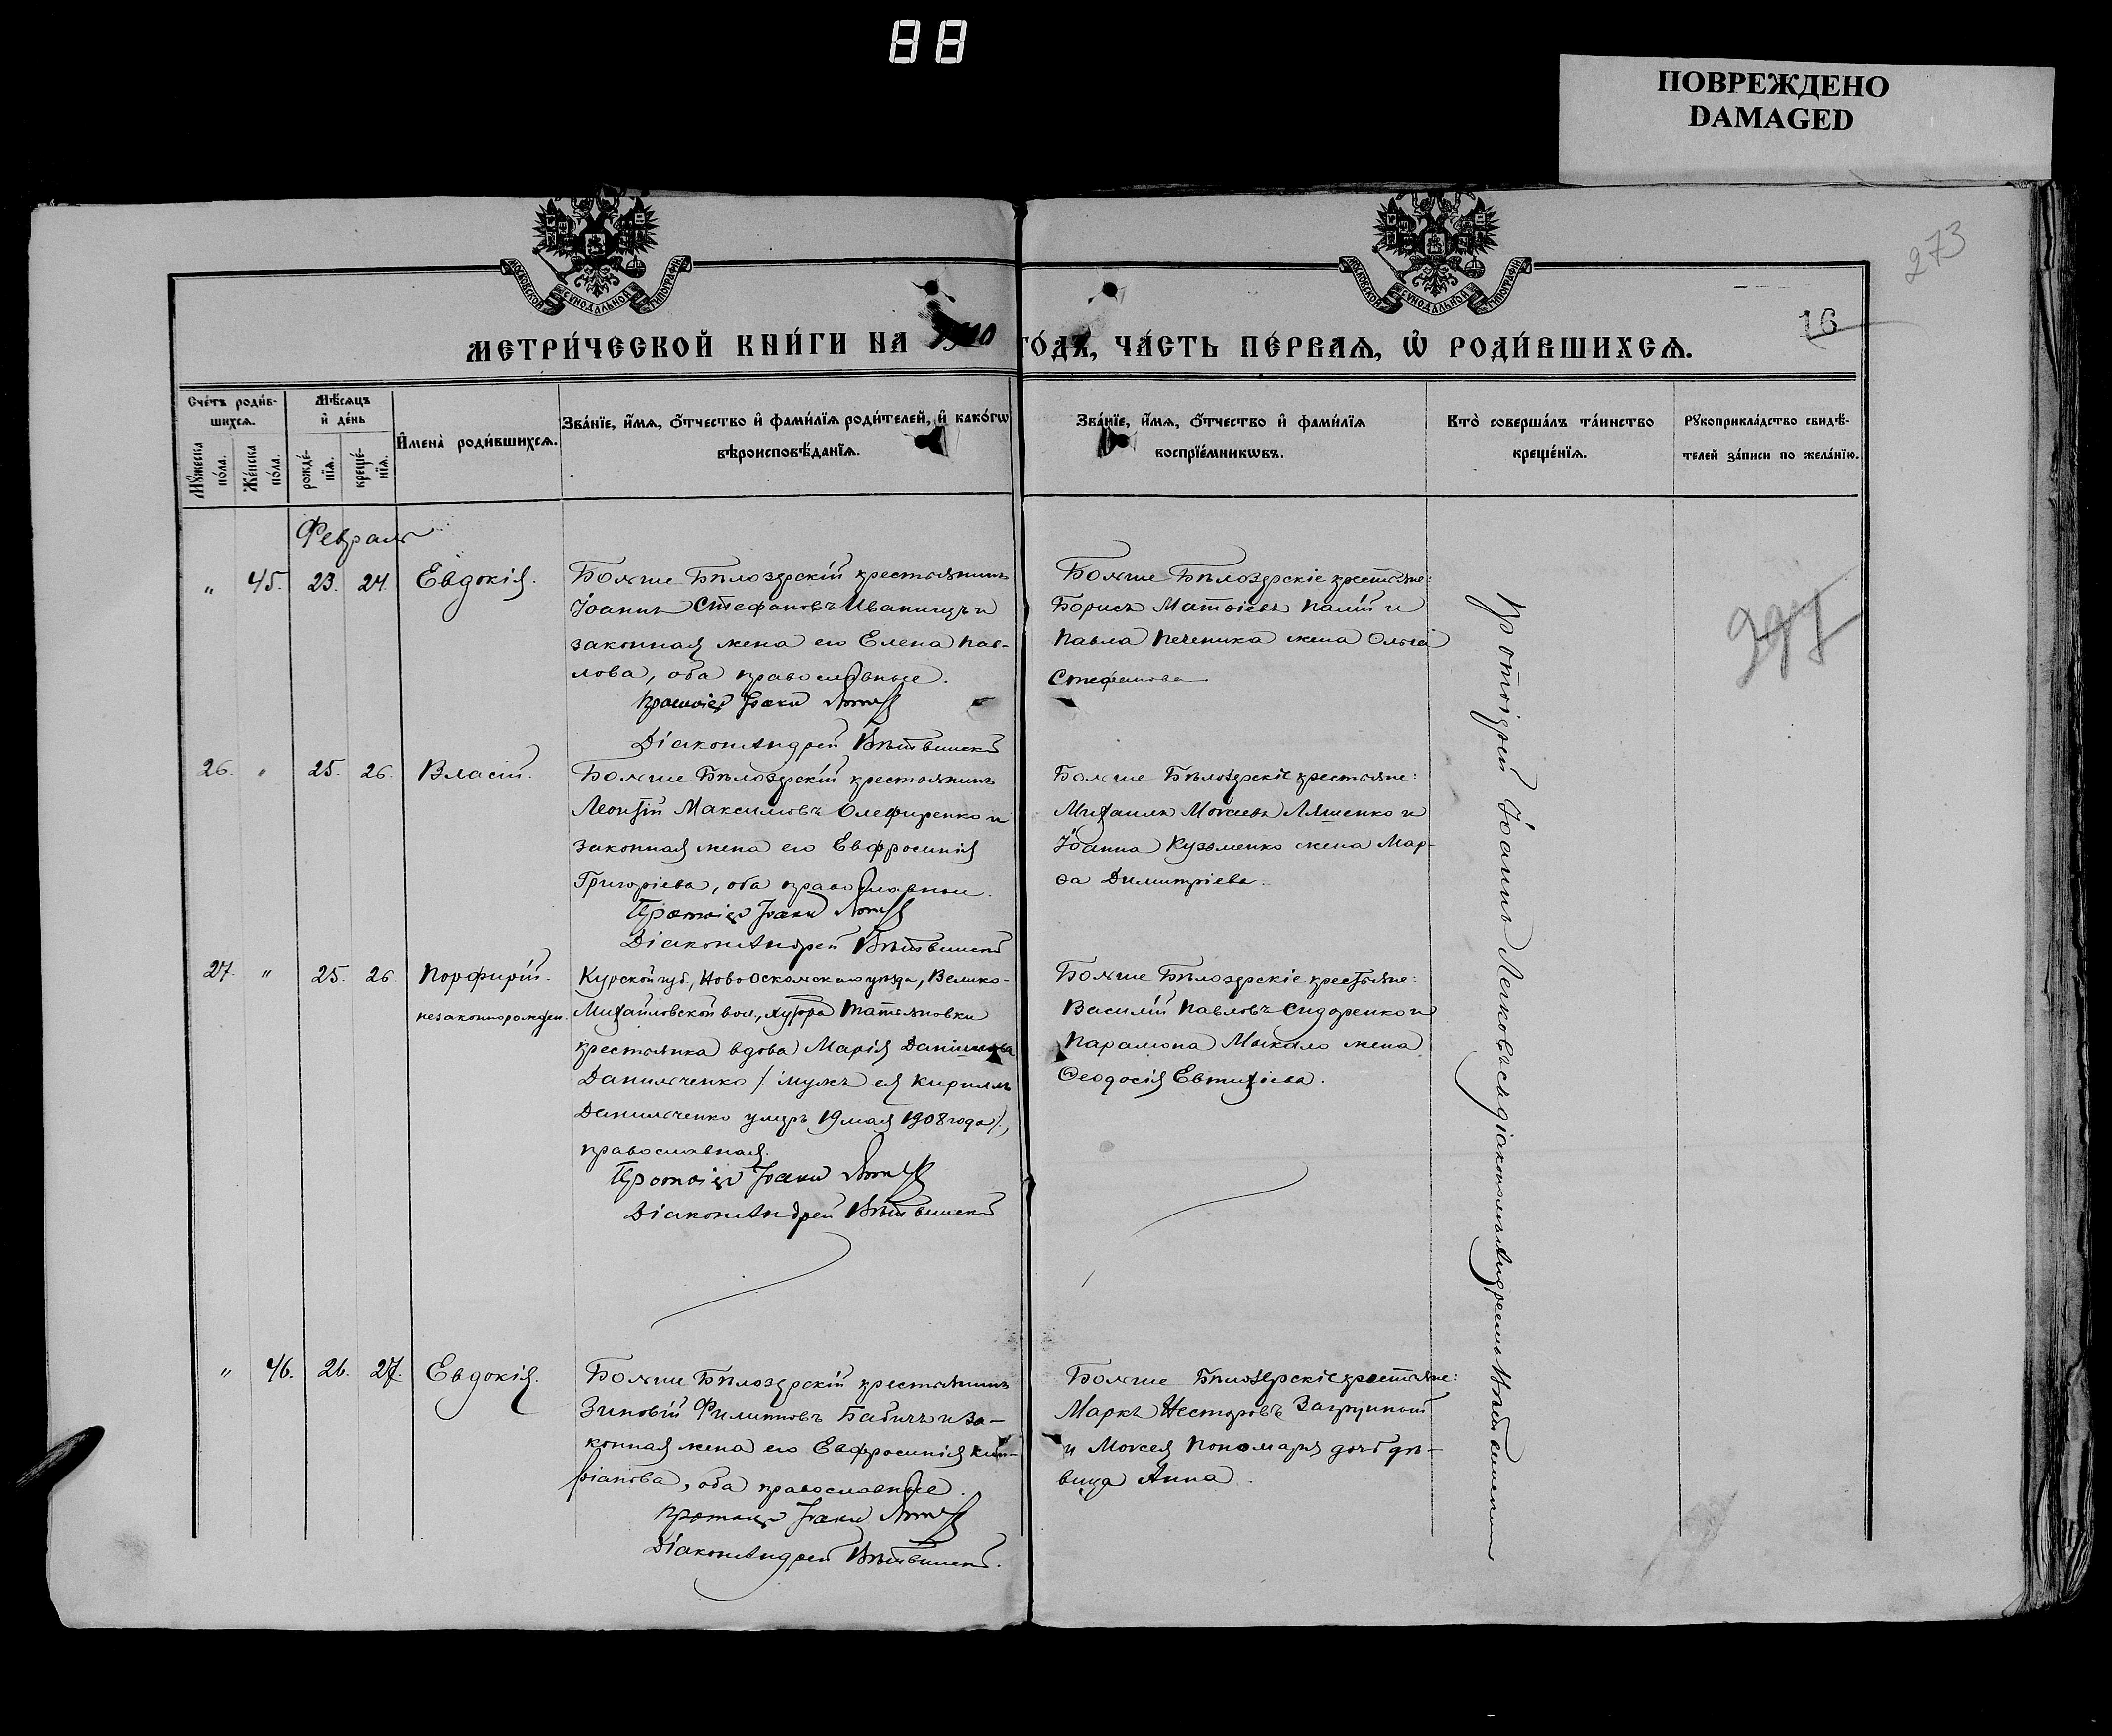 88
ПОВРЕЖДЕНО
DAMAGED
273
МОСКОВСКОЙ СѴНОДАЛЬНОЙ ТИПОГРАФІИ
МОСКОВСКОЙ СѴНОДАЛЬНОЙ ТИПОГРАФІИ
16
МЕТРИ́ЧЕСКОЙ КНИ́ГИ НА 1910 ГО́ДЪ, ЧА́СТЬ ПЕ́РВАѦ, Ѡ҆ РОДИ́ВШИХСѦ.
Сче́тъ роди́в-
шихсѧ.
Мꙋ́жеска по́ла.
Же́нска по́ла.
Мѣ́сѧцъ
и҆ де́нь
рожде́-
нїѧ.
креще́-
нїѧ.
И҆мена̀ роди́вшихсѧ.
Зва́нїе, и҆́мѧ, ѻ҆́тчество и҆ фами́лїѧ роди́телей, и҆ како́гѡ
вѣроисповѣ́данїѧ.
Зва́нїе, и҆́мѧ, ѻ҆́тчество и҆ фами́лїѧ
воспрїе́мникѡвъ.
Кто̀ соверша́лъ та́инство
креще́нїѧ.
Рꙋкоприкла́дство свидѣ́-
телей за́писи по жела́нїю.
Февраль
" 45. 23. 24. Евдокія.
Больше Бѣлозерскій крестьянинъ
Іоаннъ Стефановъ Иваницъ и
законная жена его Елена Пав-
лова, оба православные.
Протоіер Іоанн
Діаконъ Андрей
Больше Бѣлозерскіе крестьяне:
Борисъ Матвіевъ Палій и
Павла Печеника жена Ольга
Стефанова
397
26. " 25. 26. Власій.
Больше Бѣлозерскій крестьянинъ
Леонтій Максимовъ Олефиренко и
законная жена его Евфросинія
Григоріева, оба православные.
Протоіер Іоанн
Діаконъ Андрей
Больше Бѣлозерскіе крестьяне:
Михаилъ Моѵсеевъ Ляшенко и
Іоанна Кузьменко жена Мар-
ѳа Димитріева.
27. " 25. 26. Порфирій.
незаконнорожден.
Курской губ., Ново Оскольскаго уѣзда, Велико-
Михайловской вол., хутора Татьяновки
крестьянка вдова Марія Даніилова
Данильченко /: мужъ ея Кириллъ
Данильченко умеръ 19 мая 1908 года :/,
православная.
Протоіер Іоанн
Діаконъ Андрей
Больше Бѣлозерскіе крестьяне:
Василій Павловъ Сидоренко и
Парамона Мыкало жена
Ѳеодосія Евтихіева.
" 46. 26. 27. Евдокія.
Больше Бѣлозерскій крестьянинъ
Зиновій Филипповъ Бабичъ и за-
конная жена его Евфросинія Кип-
ріанова, оба православные.
Протоіер Іоанн
Діаконъ Андрей
Больше Бѣлозерскіе крестьяне:
Маркъ Несторовъ Загрунный
и Моѵсея Пономаря дочь дѣ-
вица Анна.
Протоіерей Іоаннъ Легковъ съ діакономъ Андреемъ